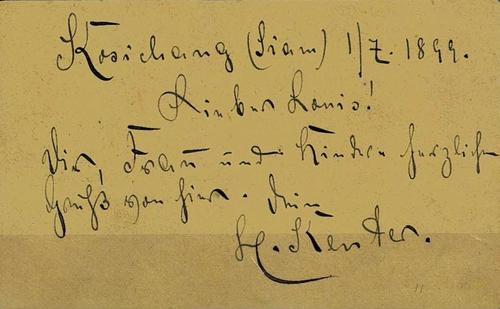 Kosichang (Siam) 1/7. 1899.
Lieber Louis!
Dir, Frau und Kindern herzliche
Grüße von hier. Dein
H. Kenter.